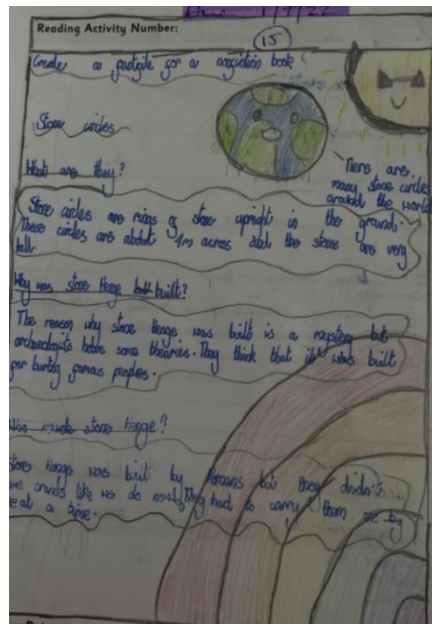 1/7/22
Reading Activity Number:
15
Create a factfile for a nonfiction book
Stone circles
What are they?
There are
many stone circles
around the world
Stone circles are rings of stone upright in the ground.
These circles are about 4m across and the stones are very
tall.
Why was stone Henge built?
The reason why stone Henge was built is a mystery but
archeologists have some theories. They think that it was built
for burying famous peoples.
Who made stone Henge?
Stone Henge was built by but they didn't
have cranes like we do They had to carry them one by
one at a time.